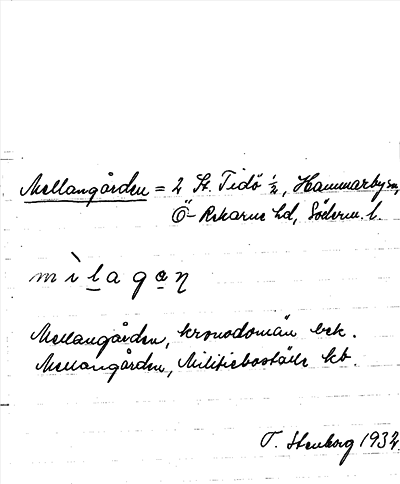 Mellangården = 2 St. Tidö ½, Hammarby sn,
Ö-Rekarne hd, Söderm. l.
m ì l a g ə n
Mellangården, kronodomän bek.
Mellangården, Militieboställe kb.
T. Stenborg 1934.